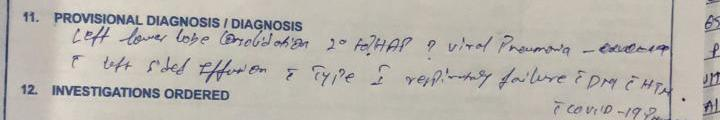 11. PROVISIONAL DIAGNOSIS / DIAGNOSIS
Left lower lobe Consolidation 2° to ? HAP ? viral Pneumonia –
c̄ left sided effusion c̄ Type I respiratory failure c̄ DM c̄ HTN.
12. INVESTIGATIONS ORDERED
c̄ COVID-19 ?